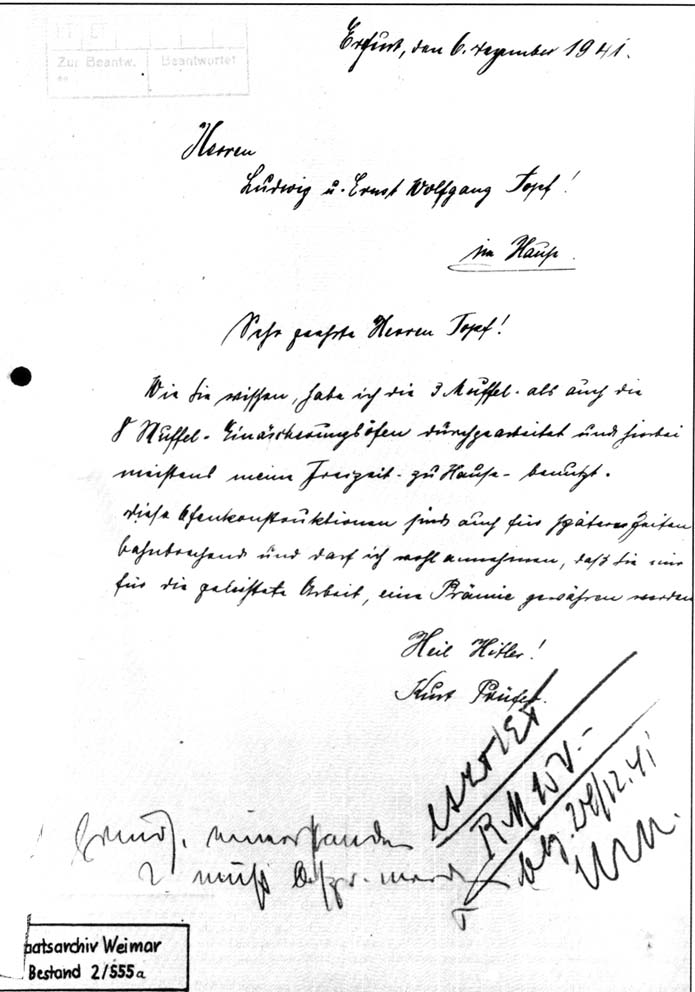 Zur Beantw. Beantwortet
Erfurt, den 6. Dezember 1941.
Herren
Ludwig u. Ernst Wolfgang Topf!
im Hause.
Sehr geehrte Herren Topf!
Wie Sie wissen, habe ich die 3 Muffel- als auch die
8 Muffel-Einäscherungsöfen durchgearbeitet und hierbei
meistens meine Freizeit - zu Hause - benutzt.
Diese Ofenkonstruktionen sind auch für spätere Zeiten
bahnbrechend und darf ich wohl annehmen, daß Sie mir
für die geleistete Arbeit, eine Prämie gewähren werden.
Heil Hitler!
Kurt Prüfer.
einverstanden
muß
RM
bez. 24/12.41
aatsarchiv Weimar
Bestand 2/555a